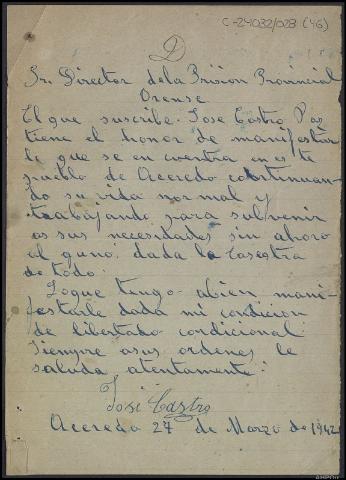 C-24032/023 (46)
D
Sr. Director dela Prision Provincial
Orense
El que suscribe. Jose Castro Paz
tiene el honor de manifestar
le que se en cuentra en es te
pueblo de Aceredo continuan
do su vida normal y
trabajando para subvenir
as sus necesidades sin ahoro
al guno, dada la
de todo.
Loque tengo abien mani-
festarle dada mi condicion
de libertado condicional
Siempre asus ordenes le
saluda atentamente:
José Castro
Aceredo 27 de Marzo de 1942